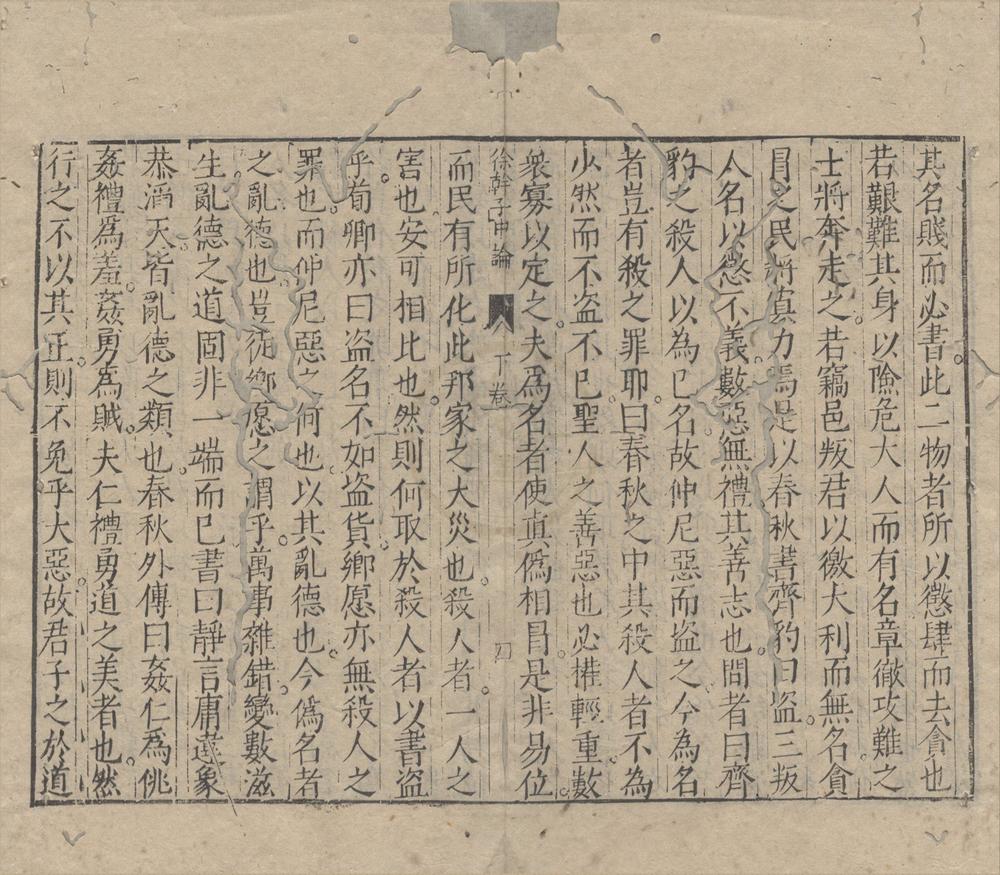 其名賤而必書此二物者所以懲肆而去貪也
若艱難其身以險危大人而有名章徹攻難之
士將奔走之若竊邑叛君以徼大利而無名貪
冒之民將寘力焉是以春秋書齊豹曰盜三叛
人名以懲不義數惡無禮其善志也問者曰齊
豹之殺人以為已名故仲尼惡而盜之今為名
者豈有殺之罪耶曰春秋之中其殺人者不為
少然而不盜不巳聖人之善惡也必權輕重數
衆寡以定之夫為名者使真偽相冒是非易位
徐幹子中論 下卷 四
而民有所化此邦家之大災也殺人者一人之
害也安可相比也然則何取於殺人者以書盜
乎荀卿亦曰盜名不如盜貨鄉愿亦無殺人之
罪也而仲尼惡之何也以其亂德也今偽名者
之亂德也豈徒鄉愿之謂乎萬事雜錯變數滋
生亂德之道固非一端而巳書曰靜言庸違象
恭滔天皆亂德之類也春秋外傳曰姦仁為佻
姦禮為羞姦勇為賊夫仁禮勇道之美者也然
行之不以其正則不免乎大惡故君子之於道